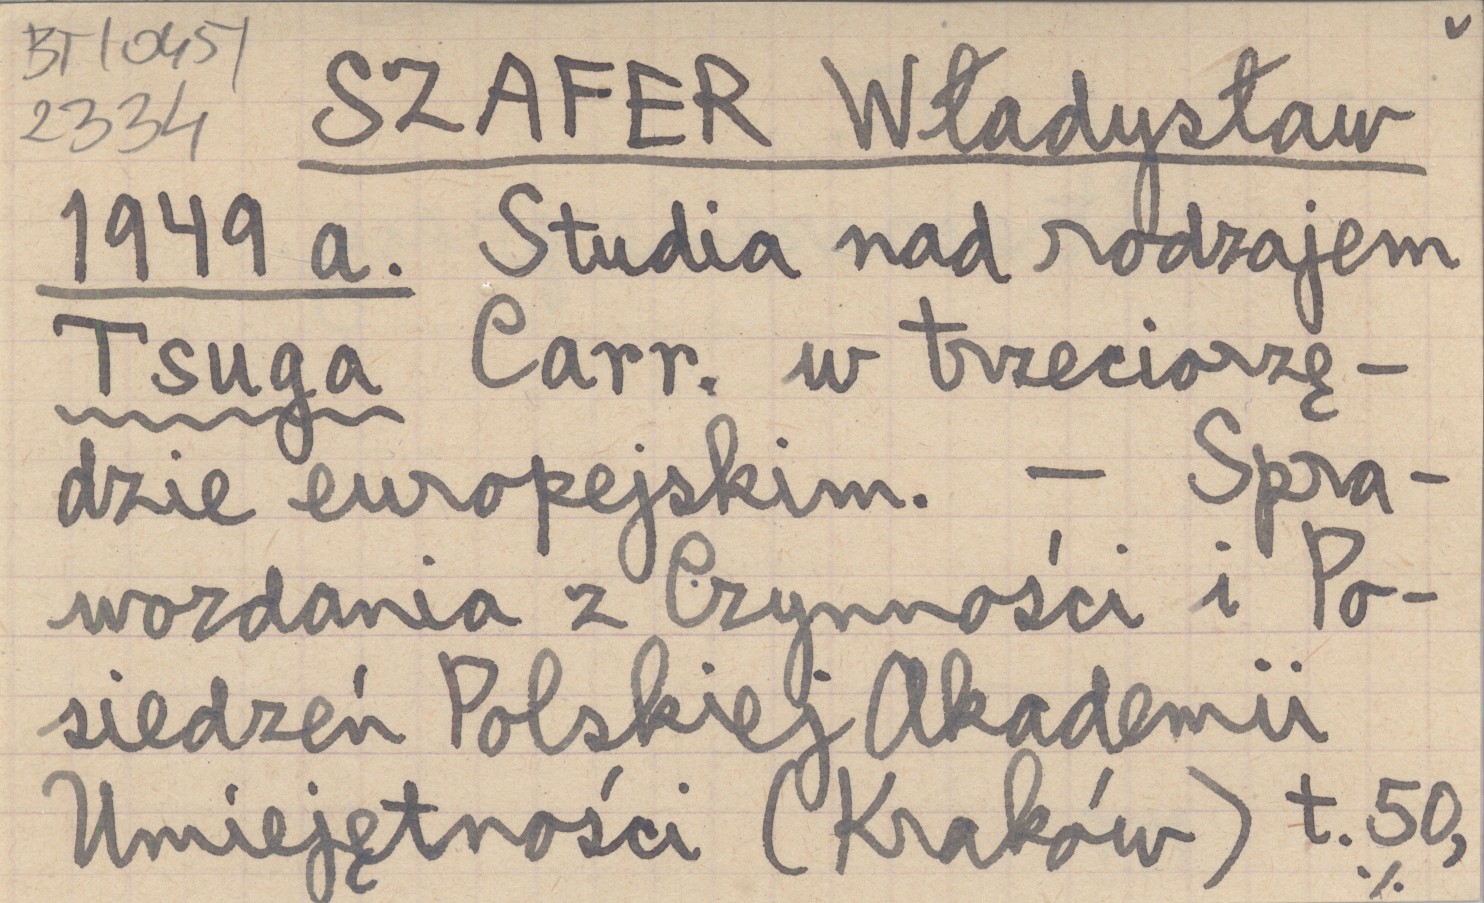 BT/045/
2334
SZAFER Władysław
1949 a. Studia nad rodzajem
Tsuga Carr. w trzeciorzę-
dzie europejskim. — Spra-
wozdania z Czynności i Po-
siedzeń Polskiej Akademii
Umiejętności (Kraków) t. 50,
./.